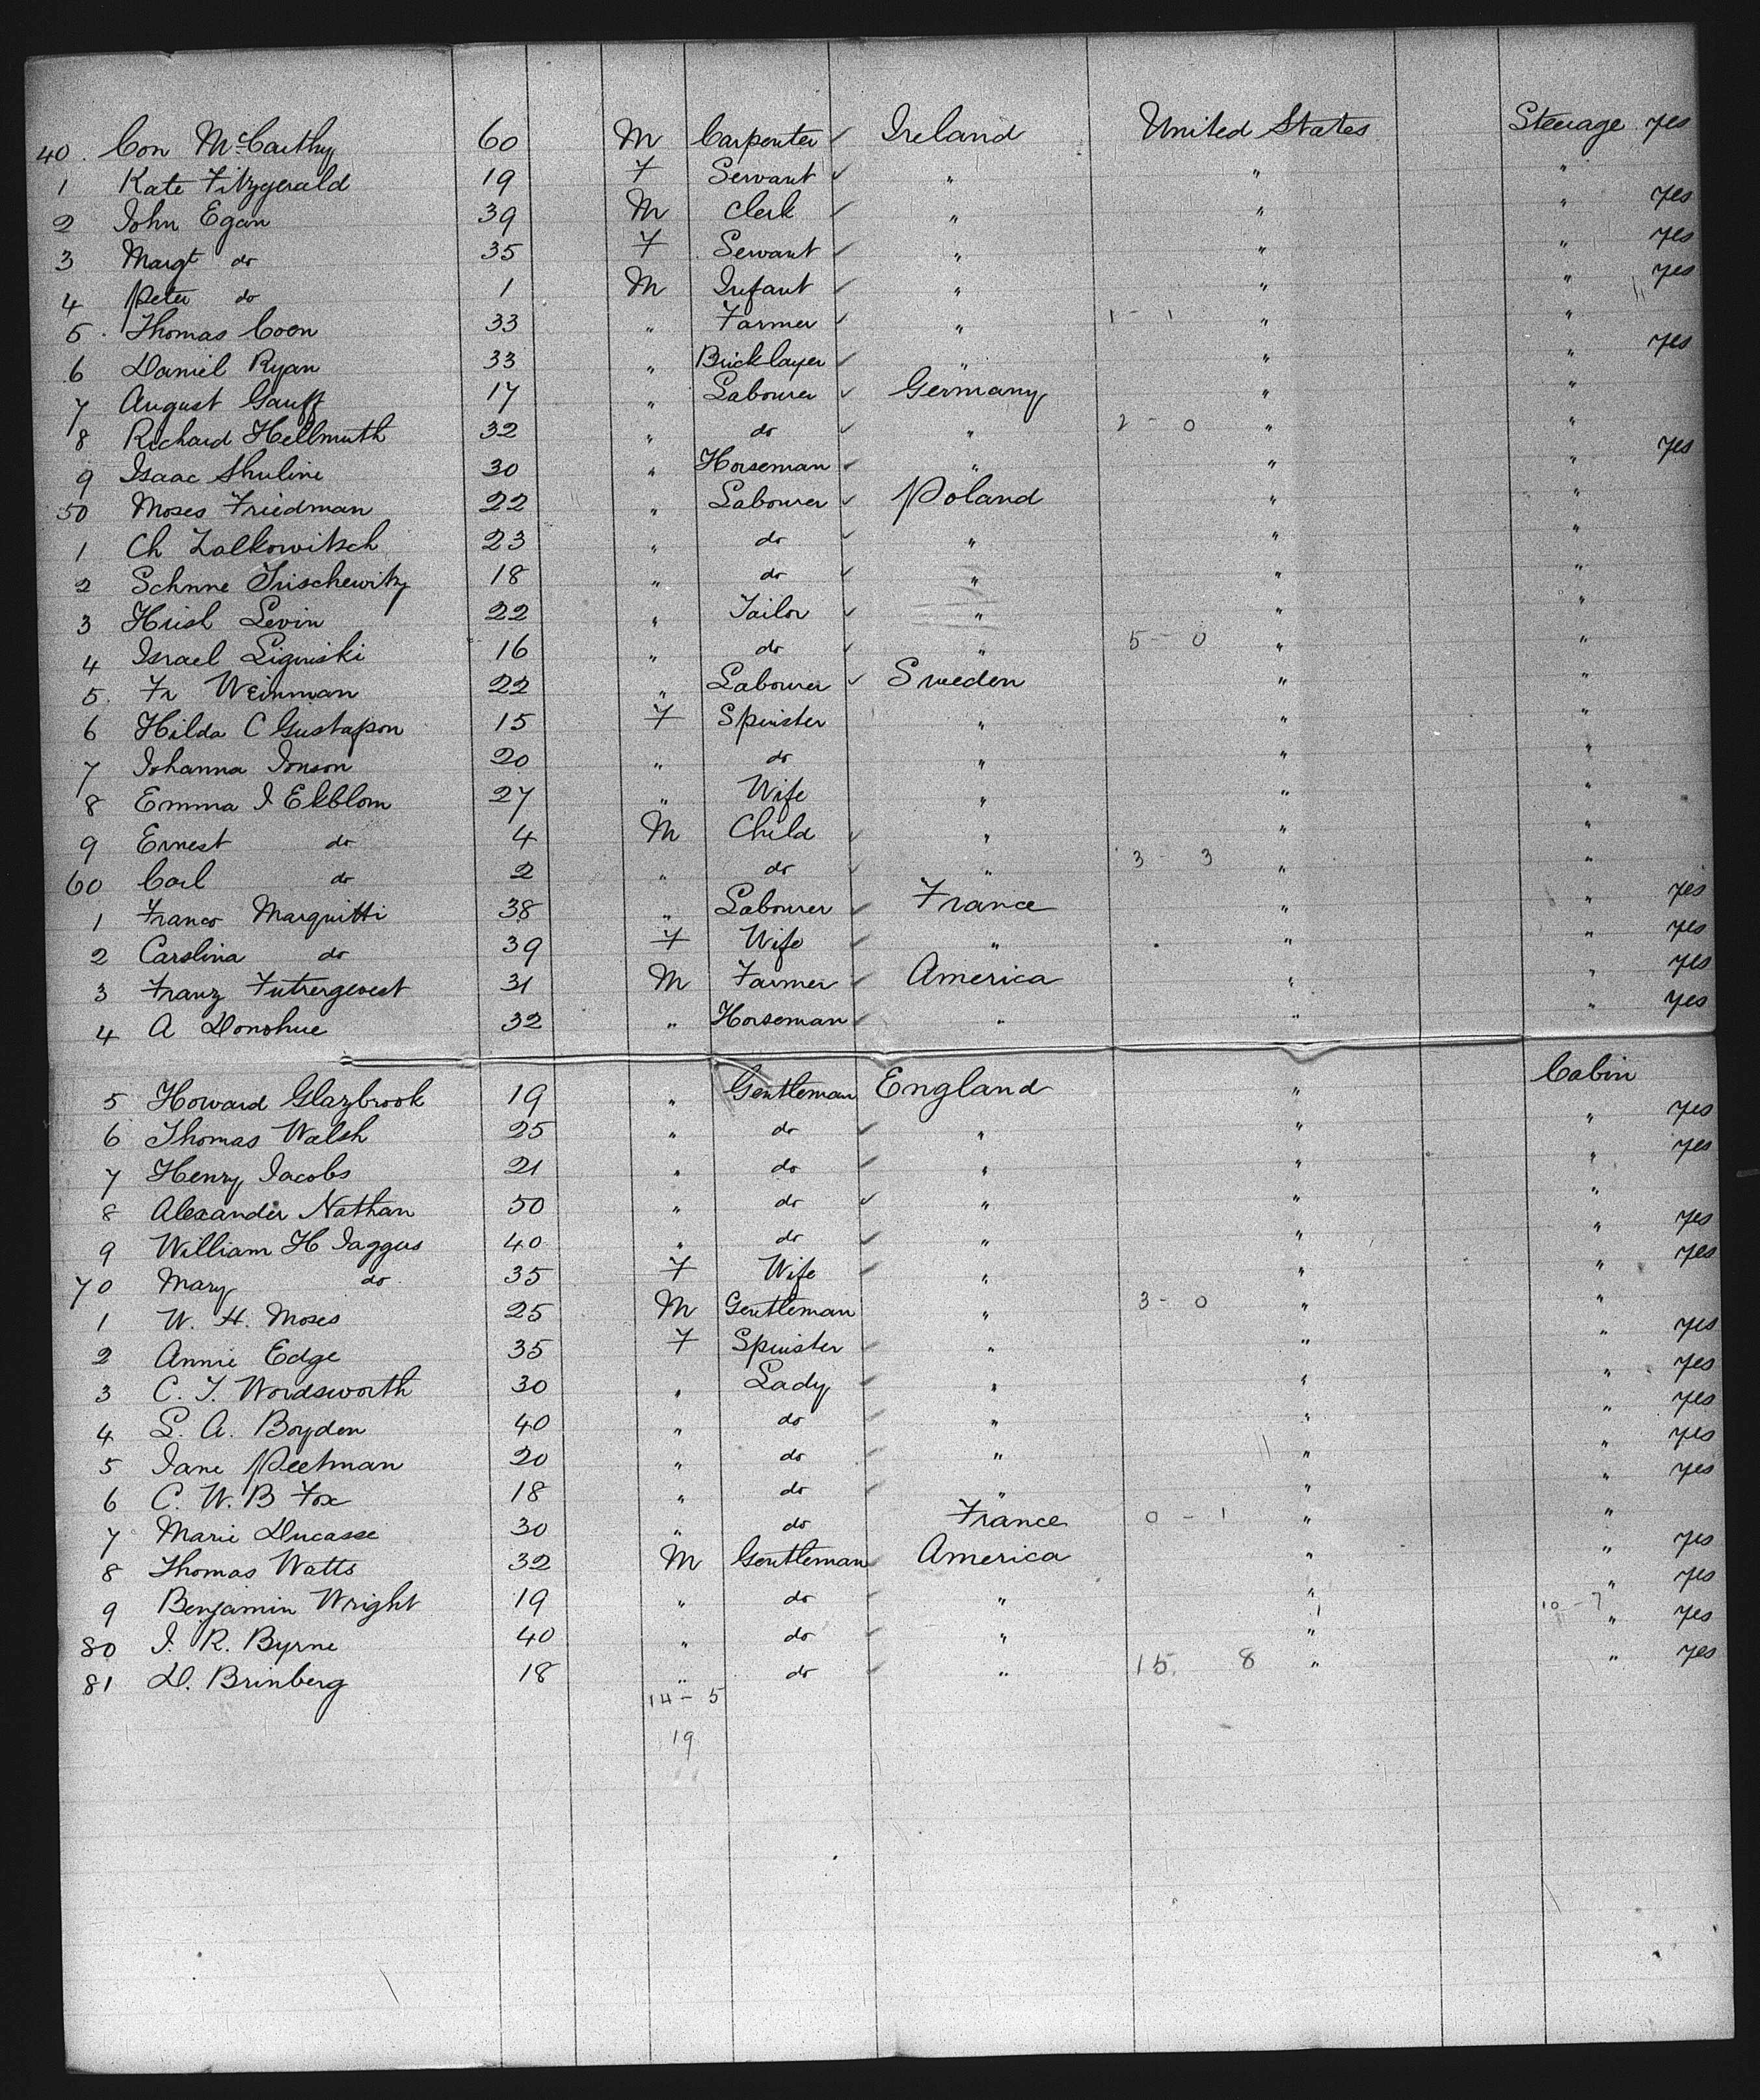 40. Con McCarthy 60 M Carpenter ✓ Ireland United States Steerage yes
1 Kate Fitzgerald 19 F Servant ✓ " " "
2 John Egan 39 M Clerk ✓ " " " yes
3 Margt do 35 F Servant ✓ " " " yes
4 Peter do 1 M Infant ✓ " " " yes
5. Thomas Coen 33 " Farmer ✓ " 1 - 1 " "
6 Daniel Ryan 33 " Bricklayer ✓ " " " yes
7 August Gauff 17 " Labourer ✓ Germany " "
8 Richard Hellmuth 32 " do ✓ " 2 - 0 " "
9 Isaac Shuline 30 " Horseman ✓ " " " yes
50 Moses Friedman 22 " Labourer ✓ Poland " "
1 Ch Zalkowitsch 23 " do ✓ " " "
2 Schnne Irischewitz 18 " do ✓ " " "
3 Hirsh Levin 22 " Tailor ✓ " " "
4 Israel 16 " do ✓ " 5 - 0 " "
5. Fr Weinman 22 " Labourer ✓ Sweden " "
6 Hilda C Gustafson 15 F Spinster " " "
7 Johanna Jonson 20 " do " " "
8 Emma J Ekblom 27 " Wife " " "
9 Ernest do 4 M Child ✓ " " "
60 Carl do 2 " do ✓ " 3 - 3 " "
1 Franco Marquitti 38 " Labourer ✓ France " " yes
2 Carolina do 39 F Wife ✓ " " " yes
3 Franz Futrergevest 31 M Farmer ✓ America " " yes
4 A Donohue 32 " Horseman ✓ " " " yes
5 Howard Glazbrook 19 " Gentleman England " Cabin
6 Thomas Walsh 25 " do ✓ " " " yes
7 Henry Jacobs 21 " do ✓ " " " yes
8 Alexander Nathan 50 " do ✓ " " "
9 William H Jaggus 40 " do ✓ " " " yes
70 Mary do 35 F Wife ✓ " " " yes
1 W. H. Moses 25 M Gentleman " 3 - 0 " "
2 Annie Edge 35 F Spinster ✓ " " " yes
3 C. T. Wordsworth 30 " Lady ✓ " " " yes
4 L. A. Boyden 40 " do ✓ " " " yes
5 Jane Peetman 20 " do ✓ " " " yes
6 C. W. B Fox 18 " do ✓ " " " yes
7 Marie Ducasse 30 " do France 0 - 1 " "
8 Thomas Watts 32 M Gentleman ✓ America " " yes
9 Benjamin Wright 19 " do ✓ " " " yes
10 - 7
80 J. R. Byrne 40 " do ✓ " " " yes
81 D. Brinberg 18 " do ✓ " 15 8 " " yes
14 - 5
19